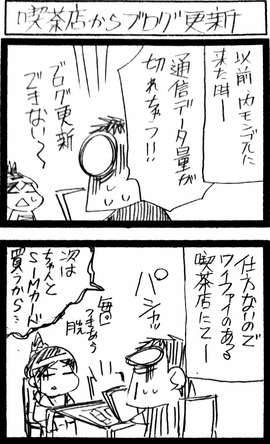 喫茶店からブログ更新
以前内モンゴルに
来た時ー
通信データ量が
切れちゃう!!
ブログ更新
できない〜
仕方ないので
ワイファイのある
喫茶店にてー
パシャッ
毎回
つきあう
次は
ちゃんと
SIMカード
買うから…